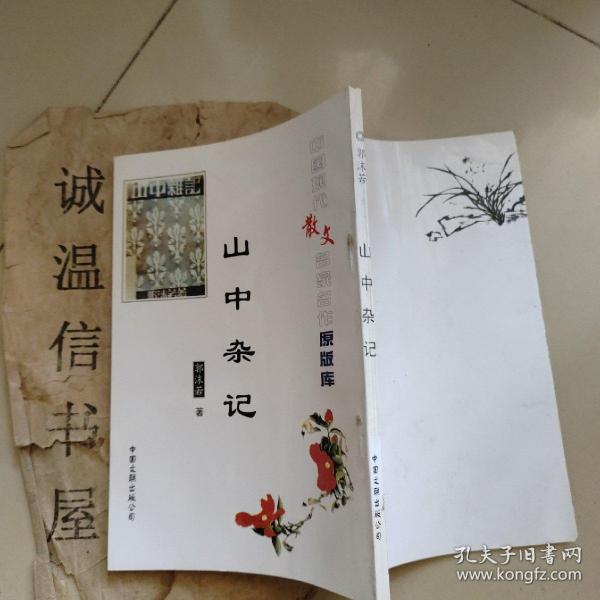 诚温信书屋
山中雜記
山中杂记
郭沫若
著
中国文联出版公司
中国现代散文名家名作原版库
郭沫若
山中杂记
中国文联出版公司
孔夫子旧书网
www.kongfz.com